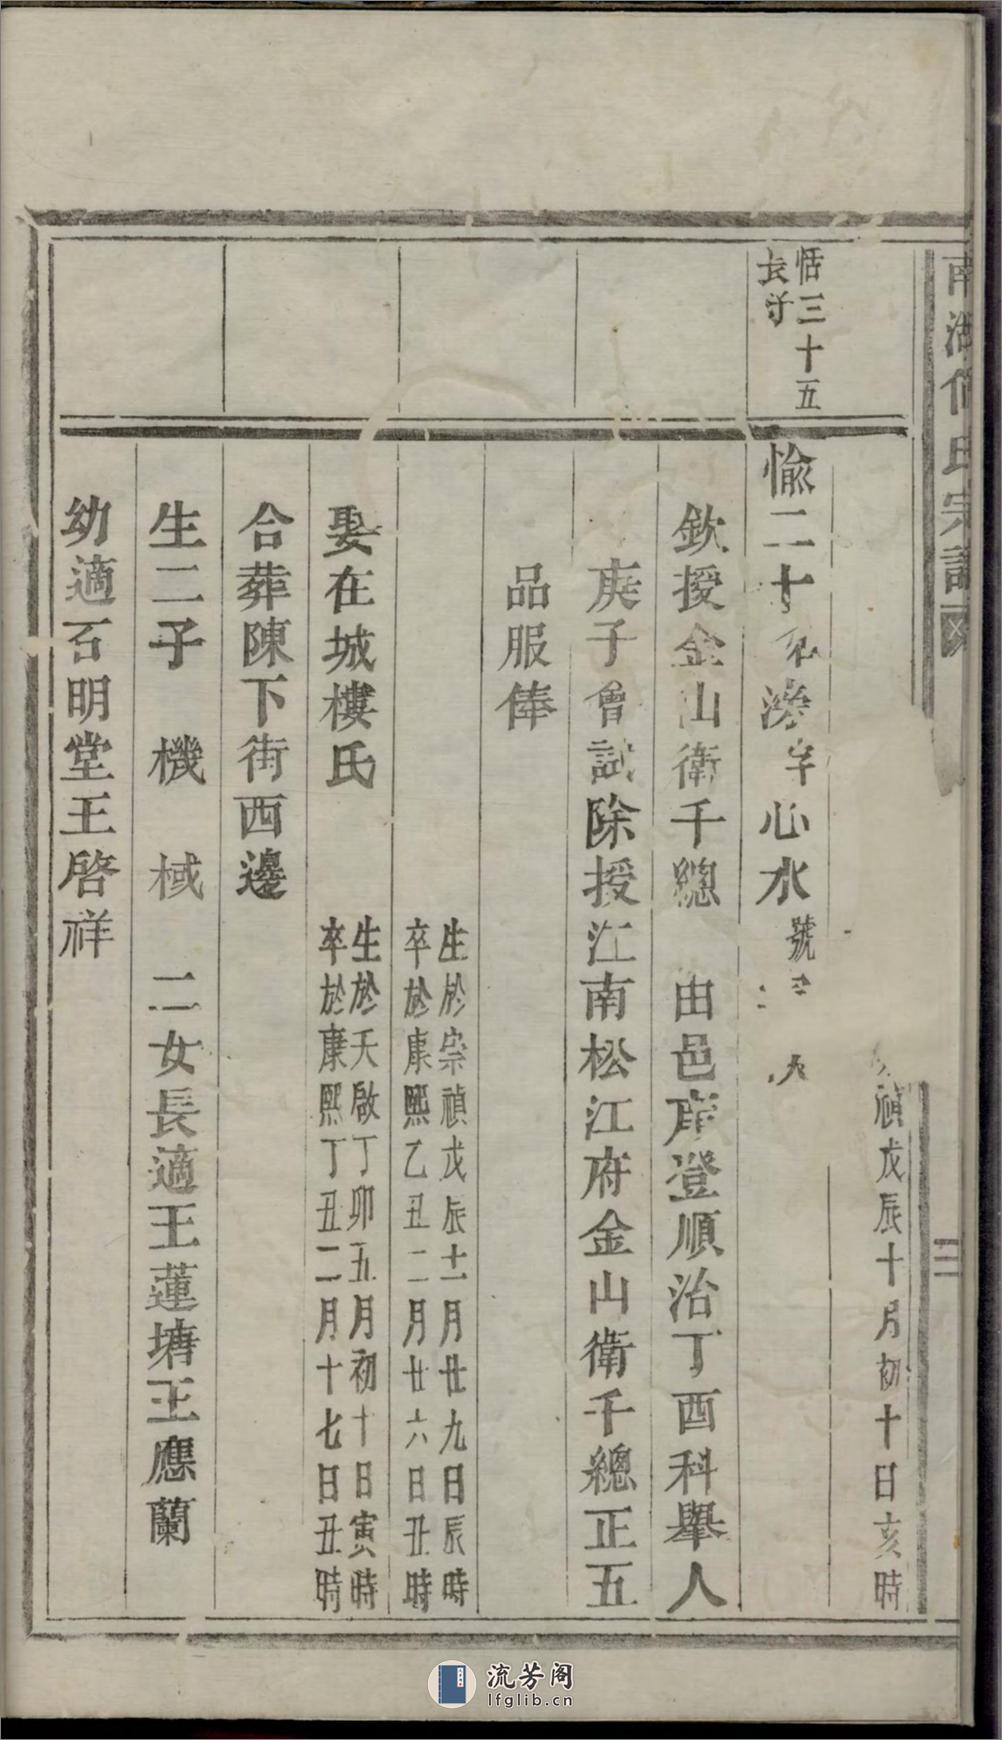 南湖何氏宗譜
三
禎戊辰十月初十日亥時
恬三十五
長守
愉二十 字心水號
欽授金山衛千總 由邑庠登順治丁酉科舉人
庚子會試除授江南松江府金山衛千總正五
品服俸
生於崇禎戊辰十一月廿九日辰時
卒於康熙乙丑二月廿六日丑時
娶在城樓氏
生於天啟丁卯五月初十日寅時
卒於康熙丁丑二月十七日丑時
合葬陳下街西邊
生二子 機 棫 二女長適王蓮塘王應蘭
幼適石明堂王啓祥
流芳阁
lfglib.cn